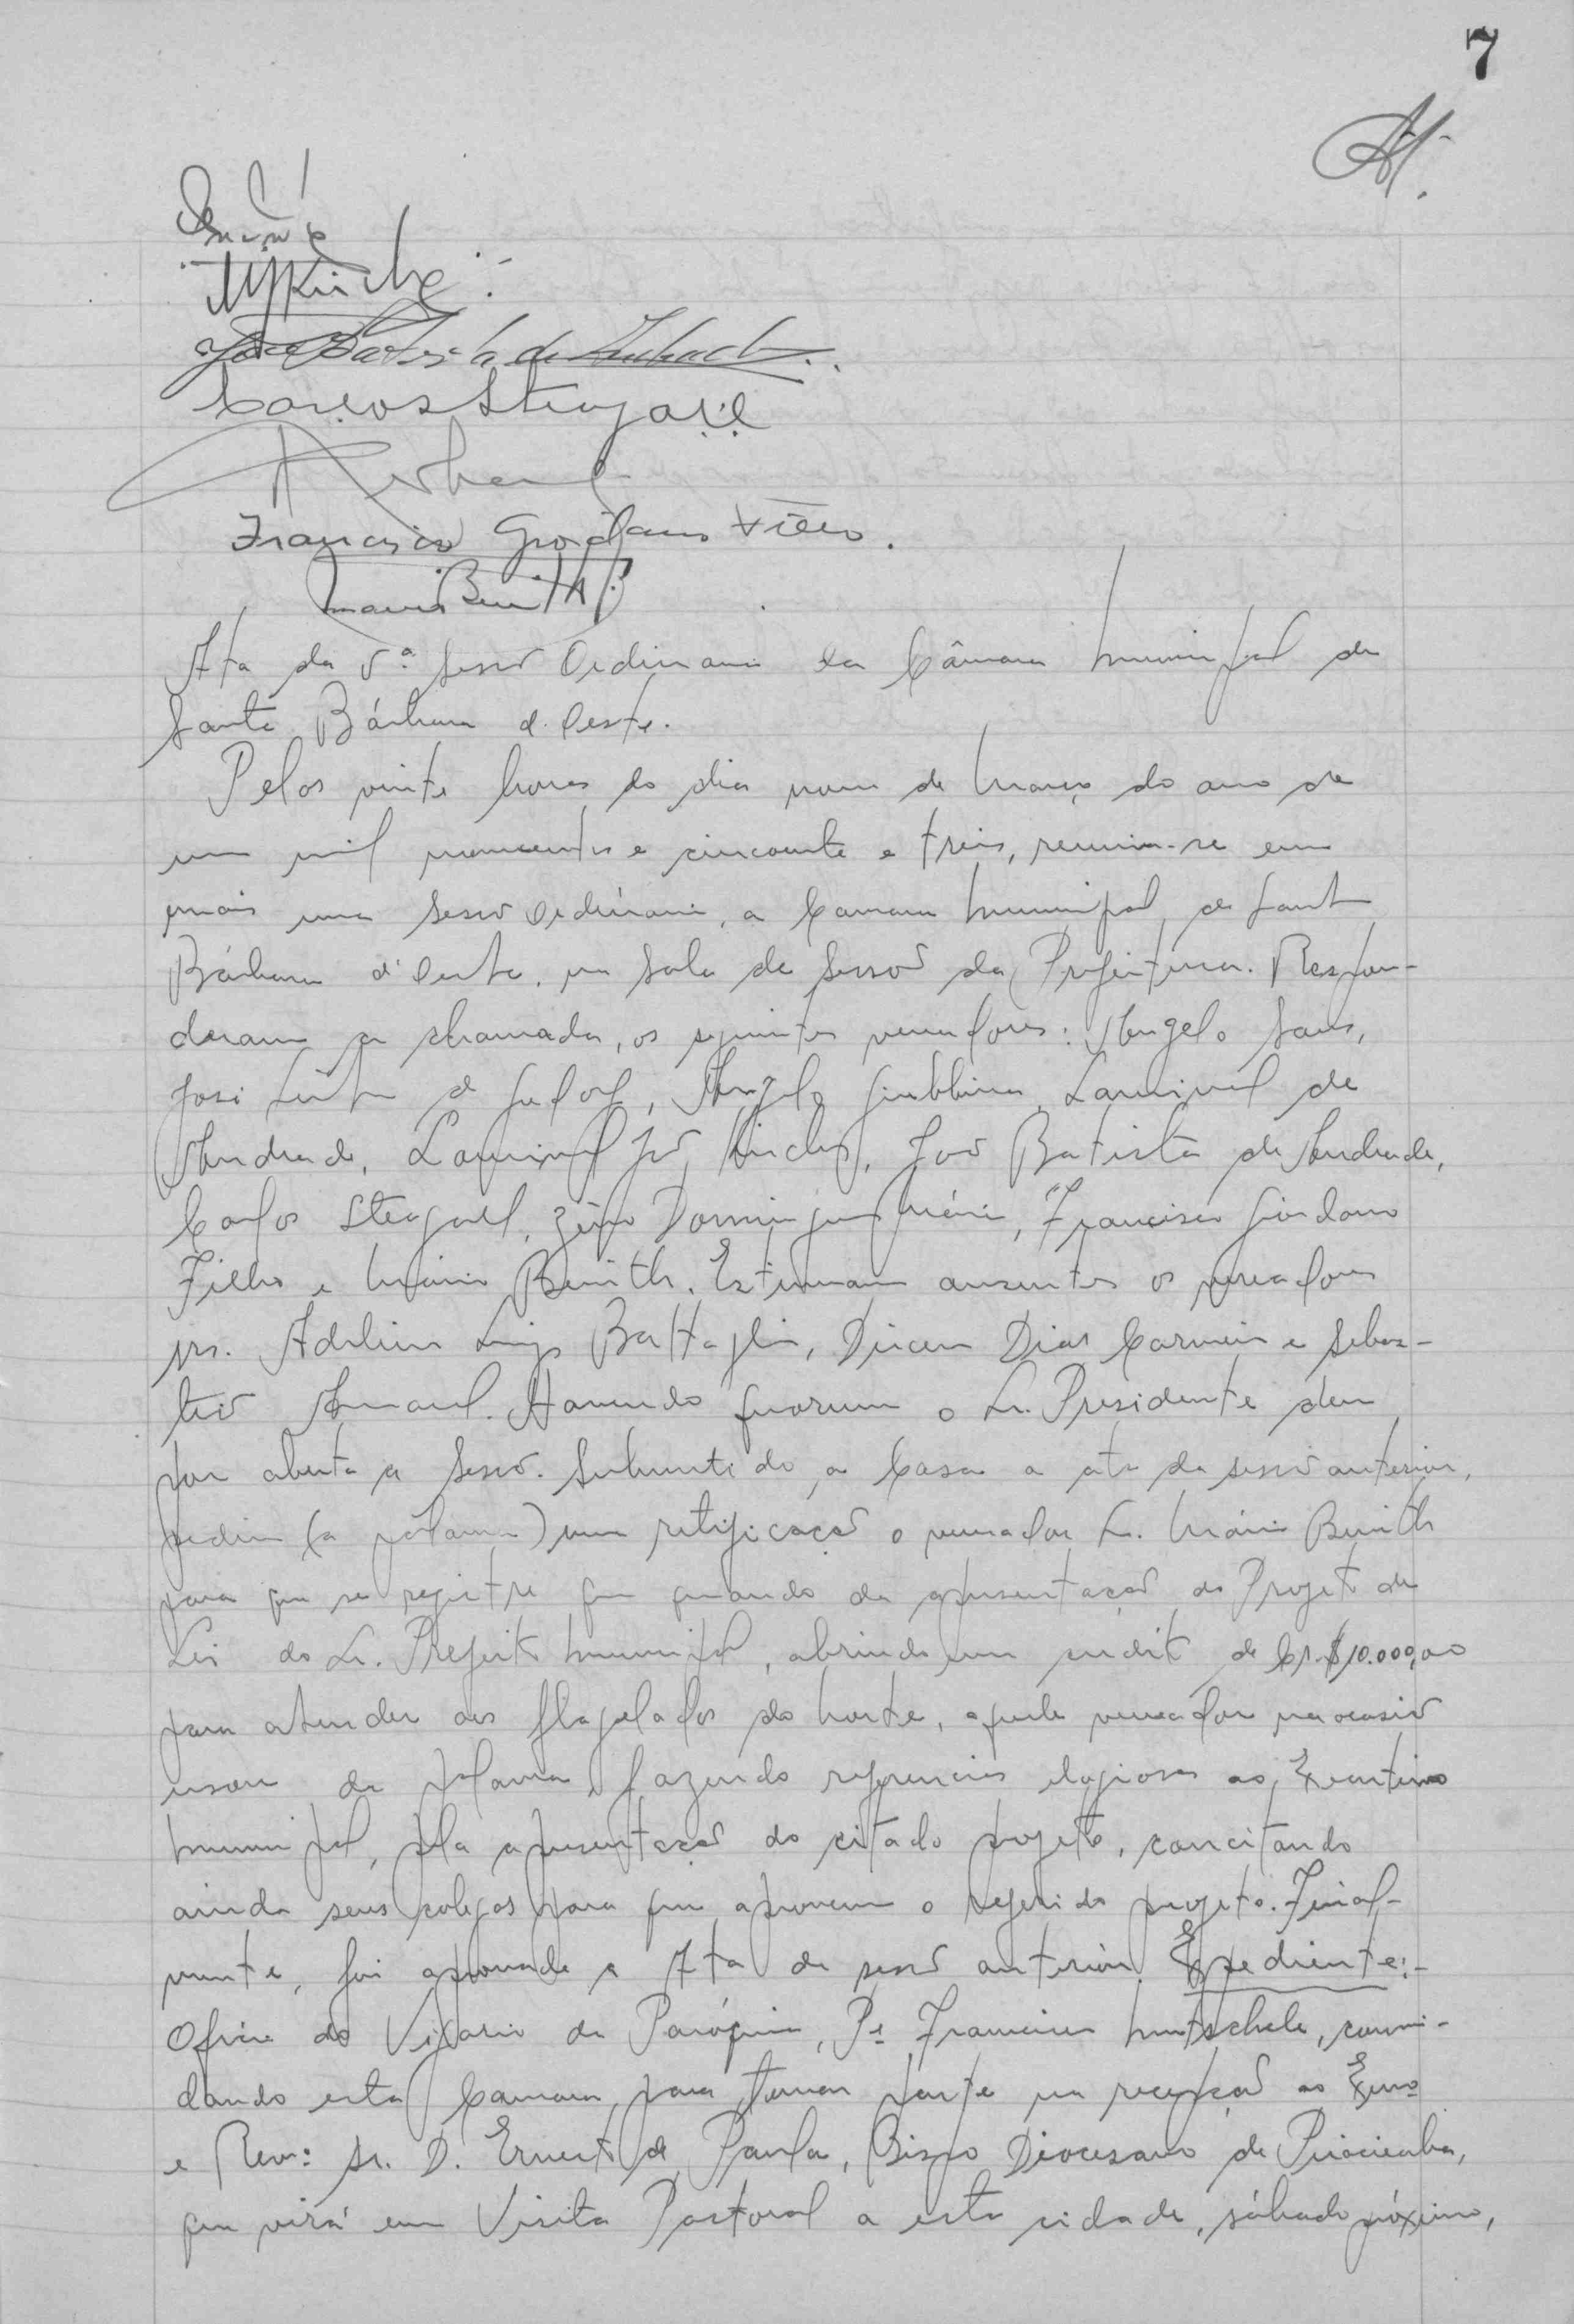 7
José Batista de Andrade
Carlos Steagall
Francisco Giordano Filho.
Mario Benith
Ata da 5ª sessão Ordinaria da Câmara Municipal de
Santa Bárbara d'Oeste.
Pelos vinte horas do dia nove de Março do ano de
um mil novecentos e cincoenta e treis, reuniu-se em
mais uma sessão Ordinária, a Camara Municipal de Santa
Bárbara d'Oeste, na sala de sessão da Prefeitura. Respon-
deram a chamada, os seguintes vereadores: Angelo Sans,
José Leite de Godoy, Angelo Giubbina, Lourival de
Andrade, João Batista de Andrade,
Carlos Steagall, Zéfo Domingues Máric, Francisco Giordano
Filho e Mário Benith. Estiveram ausentes os vereadores
srs. Adelino Luiz Battaglia, Dirceu Dias Carneiro e Sebas-
tião Amaral. Havendo quorum o Sr. Presidente deu
por aberta a sessão. Submetido a Casa a ata da sessão anterior,
pediu (a palavra) uma retificação o vereador Sr. Mário Benith
para que se registre que quando da apresentação do Projeto de
Lei do Sr. Prefeito Municipal, abrindo um credito de Cr.$10.000,00
para atender aos flagelados do Norte, aquele vereador na ocasião
usou da palavra fazendo referencias elogiosas ao Executivo
Municipal, pela apresentação do citado projeto, concitando
ainda seus colegas para que aprovem o referido projeto. Final-
mente, foi aprovada a Ata da sessão anterior. Expediente:-
Oficio do Vigario da Paróquia, Pe Francisco Mutschele, convi-
dando esta Camara, para tomar parte na recepção ao Exmo
e Revmo: Sr. D. Ernesto de Paula, Bispo Diocesano de Piracicaba,
que virá em Visita Pastoral a esta cidade, sábado próximo,